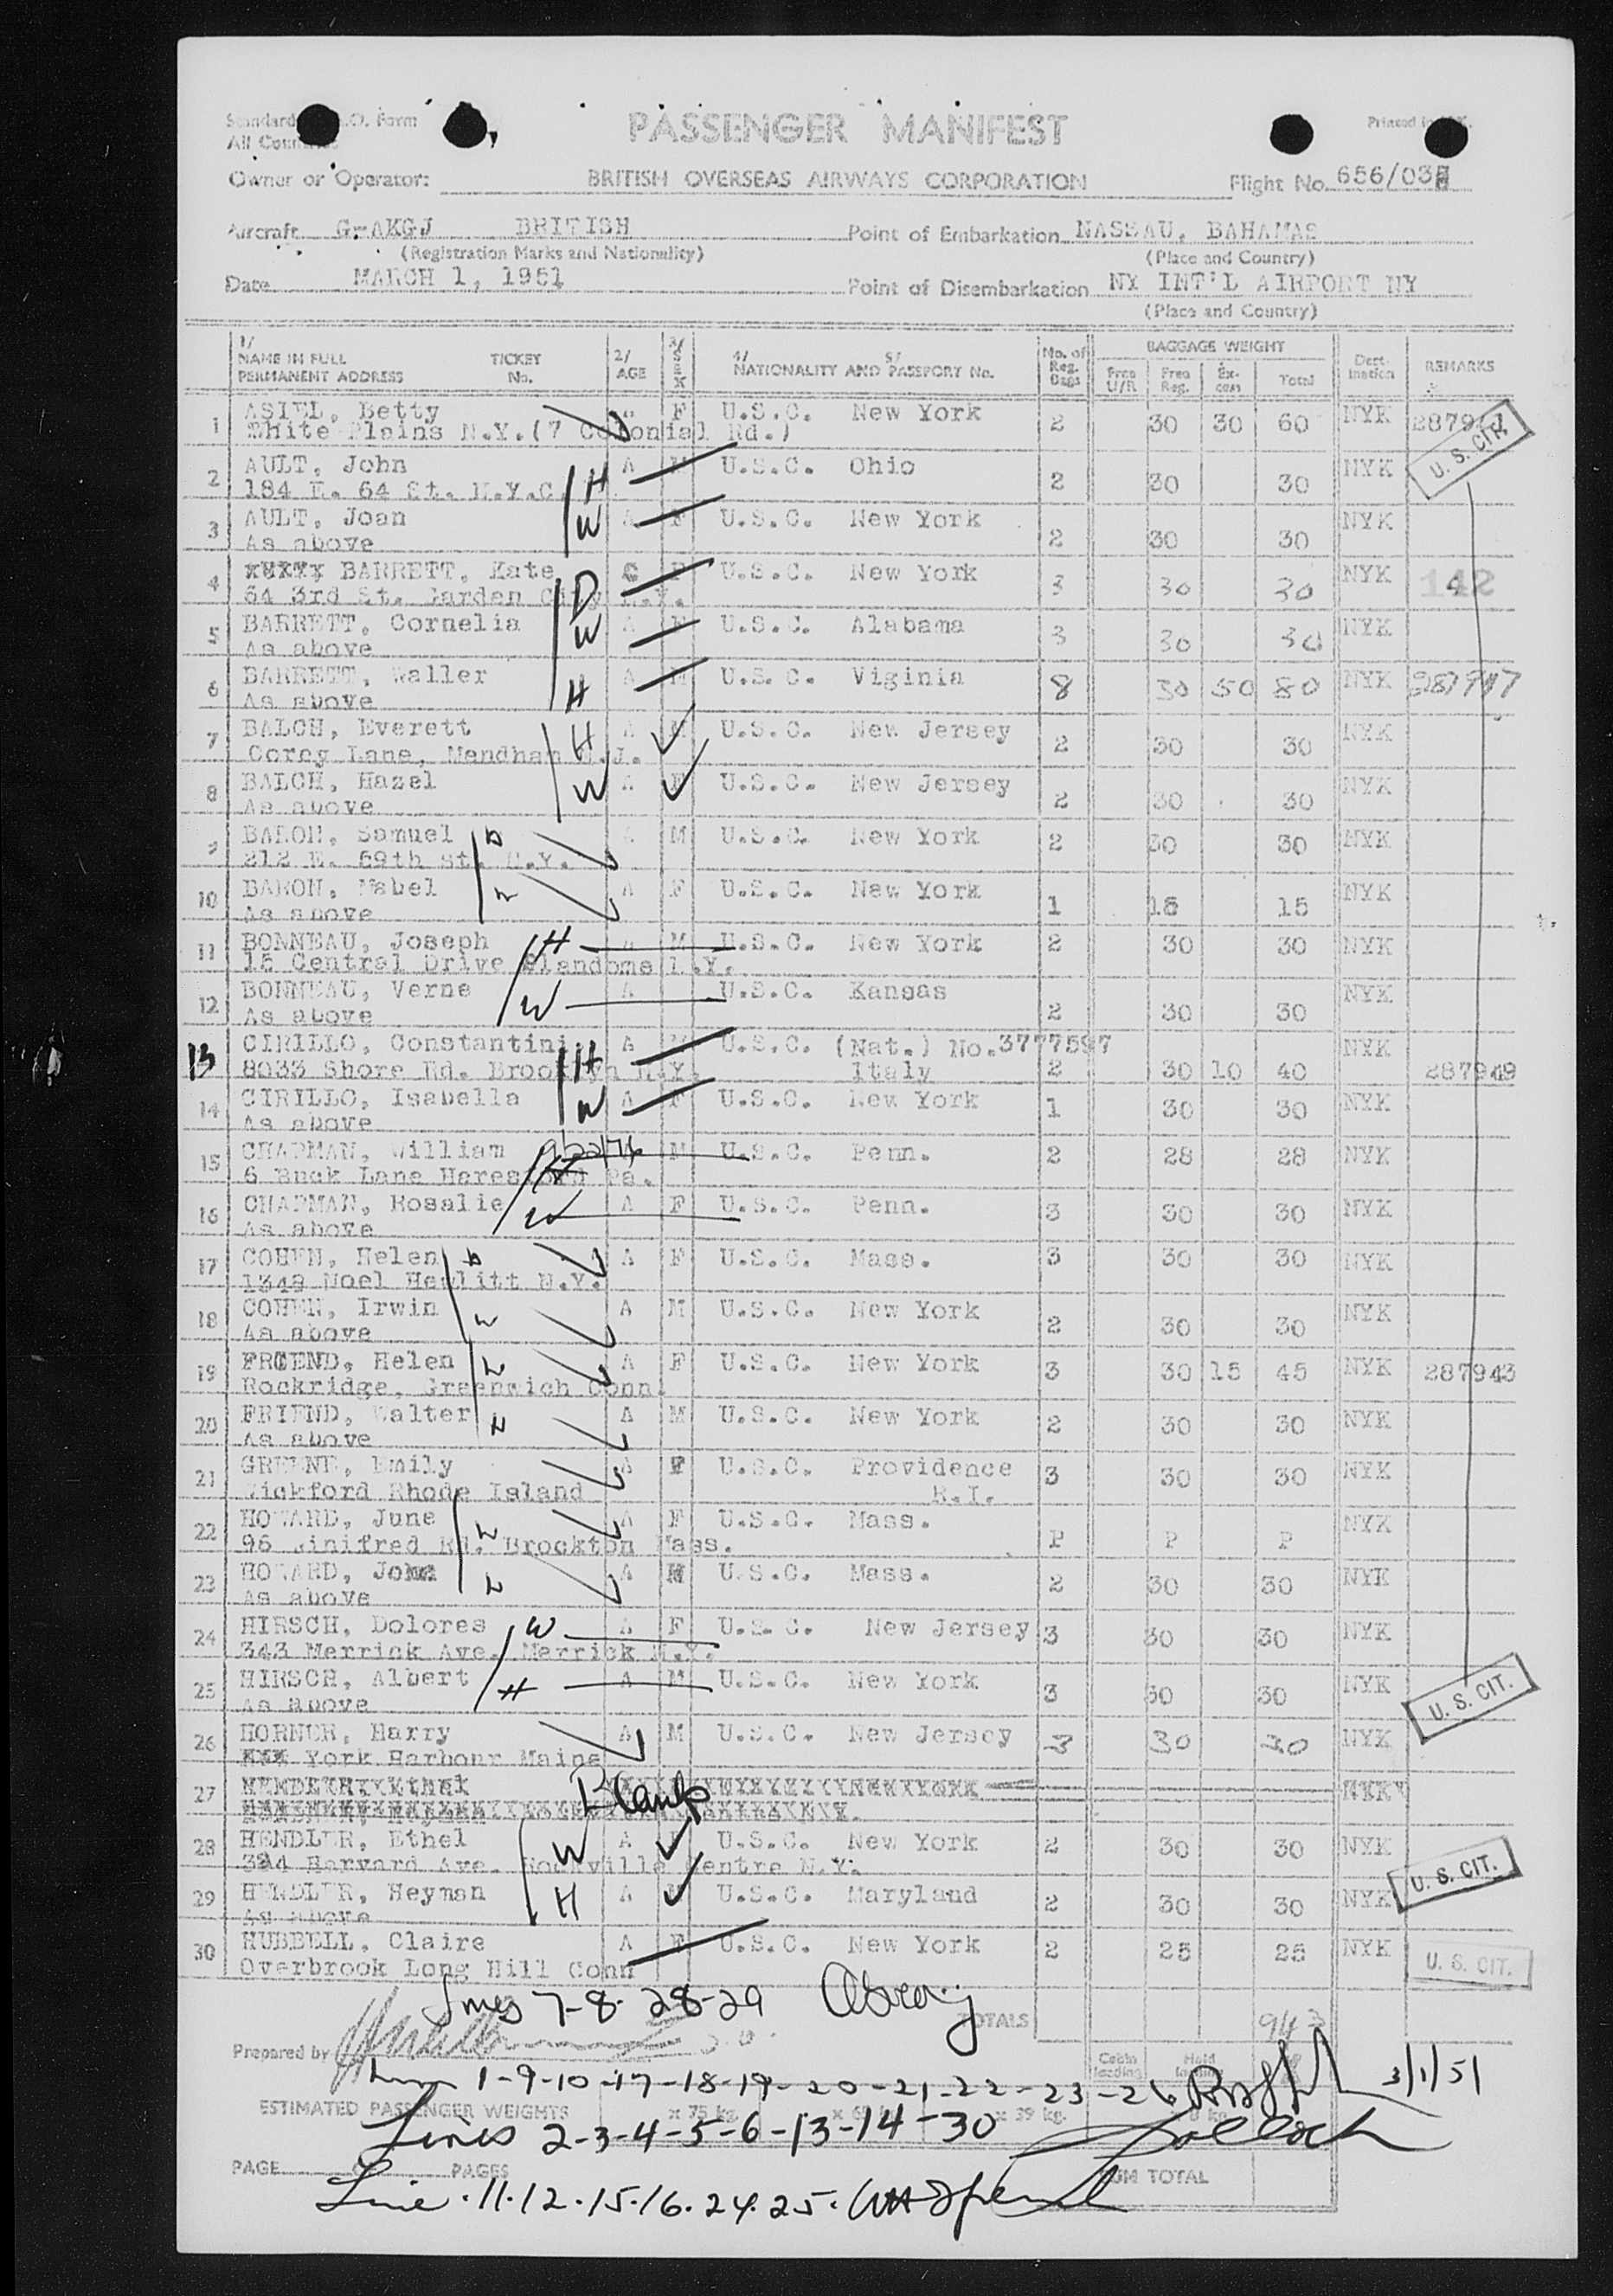 Standard .O. Form
All Countries
PASSENGER MANIFEST
Printed in
Owner or Operator: BRITISH OVERSEAS AIRWAYS CORPORATION Flight No. 656/03
Aircraft G-AKGJ BRITISH Point of Embarkation NASSAU, BAHAMAS
(Registration Marks and Nationality) (Place and Country)
Date MARCH 1, 1951 Point of Disembarkation NY INT'L AIRPORT NY
(Place and Country)
1/ NAME IN FULL PERMANENT ADDRESS TICKET No. 2/ AGE 3/ SEX 4/ NATIONALITY AND 5/ PASSPORT No. No. of Reg. Bags BAGGAGE WEIGHT Free U/R Free Reg. Ex-cess Total Dest-ination REMARKS
1 ASIEL, Betty F U.S.C. New York 2 30 30 60 NYK 2879
White Plains N.Y.(7 Colonial Rd.)
U. S. CIT.
2 AULT, John H A M U.S.C. Ohio 2 30 30 NYK
184 E. 64 St. N.Y.C.
3 AULT, Joan W A F U.S.C. New York 2 30 30 NYK
As above
4 BARRETT, Kate D C F U.S.C. New York 3 30 30 NYK 142
64 3rd St. Garden City N.Y.
5 BARRETT, Cornelia W A F U.S.C. Alabama 3 30 30 NYK
As above
6 BARRETT, Waller H A M U.S.C. Viginia 8 30 50 80 NYK 287947
As above
7 BALCH, Everett H A M U.S.C. New Jersey 2 30 30 NYK
Corey Lane, Mendham N.J.
8 BALCH, Hazel W A F U.S.C. New Jersey 2 30 30 NYK
As above
9 BARON, Samuel A M U.S.C. New York 2 30 30 NYK
212 E. 69th St. N.Y.
10 BARON, Mabel A F U.S.C. New York 1 15 15 NYK
As above
11 BONNEAU, Joseph H A M U.S.C. New York 2 30 30 NYK
15 Central Drive Plandome N.Y.
12 BONNEAU, Verne W A U.S.C. Kansas 2 30 30 NYK
As above
13 CIRILLO, Constantini H A M U.S.C. (Nat.) No.3777597 NYK
8033 Shore Rd. Brooklyn N.Y. Italy 2 30 10 40 287949
14 CIRILLO, Isabella W A F U.S.C. New York 1 30 30 NYK
As above
15 CHAPMAN, William M U.S.C. Penn. 2 28 28 NYK
6 Buck Lane Pa.
16 CHAPMAN, Rosalie W A F U.S.C. Penn. 3 30 30 NYK
As above
17 COHEN, Helen A F U.S.C. Mass. 3 30 30 NYK
1349 Noel Hewlitt N.Y.
18 COHEN, Irwin A M U.S.C. New York 2 30 30 NYK
As above
19 FRIEND, Helen A F U.S.C. New York 3 30 15 45 NYK 287943
Rockridge, Greenwich Conn.
20 FRIEND, Walter A M U.S.C. New York 2 30 30 NYK
As above
21 GREENE, Emily A F U.S.C. Providence 3 30 30 NYK
Wickford Rhode Island R.I.
22 HOWARD, June A F U.S.C. Mass. P P P NYK
96 Winifred Rd. Brockton Mass.
23 HOWARD, John A M U.S.C. Mass. 2 30 30 NYK
As above
24 HIRSCH, Dolores W A F U.S.C. New Jersey 3 30 30 NYK
343 Merrick Ave. Merrick N.Y.
25 HIRSCH, Albert H A M U.S.C. New York 3 30 30 NYK
As above
U. S. CIT.
26 HORNOR, Harry A M U.S.C. New Jersey 3 30 30 NYK
York Harbour Maine
27 Blank
28 HENDLER, Ethel W A F U.S.C. New York 2 30 30 NYK
Harvard Ave. Rockville Centre N.Y.
U. S. CIT.
29 HENDLER, Heyman H A M U.S.C. Maryland 2 30 30 NYK
As above
30 HUBBELL, Claire A F U.S.C. New York 2 25 25 NYK U. S. CIT.
Overbrook Long Hill Conn
Lines 7-8-28-29
TOTALS 943
Prepared by
Cabin loading Hold
Lines 1-9-10-17-18-19-20-21-22-23-26 3/1/51
ESTIMATED PASSENGER WEIGHTS x 75 kg. x 39 kg. kg.
Lines 2-3-4-5-6-13-14-30
PAGE PAGES TOTAL
Line 11.12.15.16.24.25.